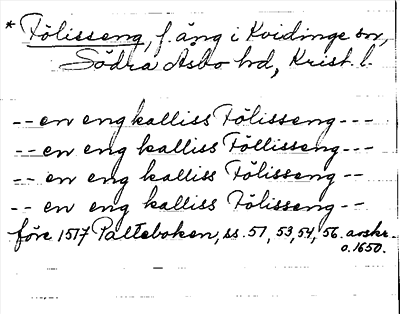 * Fölisseng, f. äng i Kvidinge sn,
Södra Asbo hd, Krist. l.
-- en eng kalliss Fölisseng ---
-- en eng kalliss Föllisseng ---
-- en eng kalliss Fölisseng --
-- en eng kalliss Fölisseng --
före 1517 Palteboken, ss. 51, 53, 54, 56. avskr.
o. 1650.